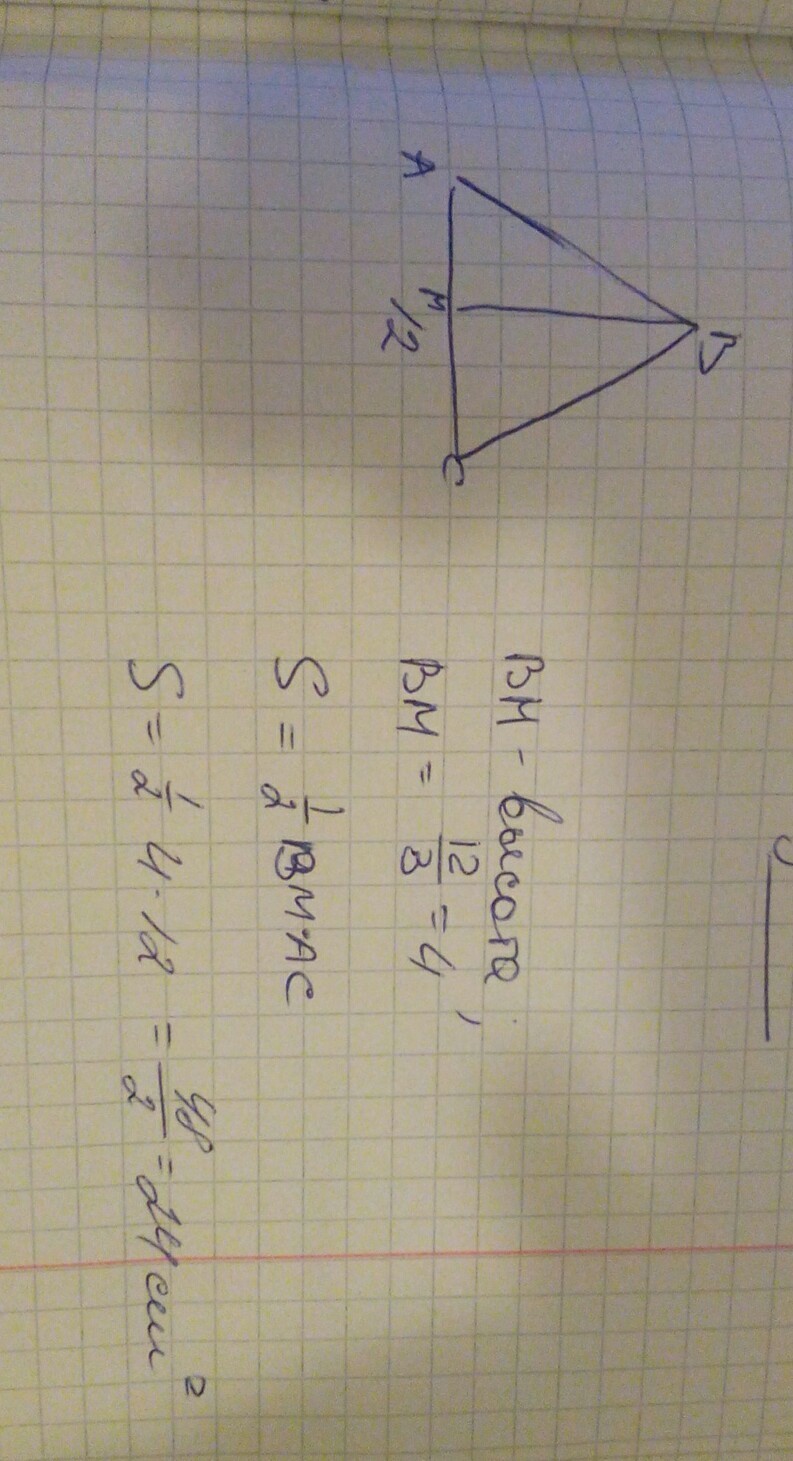 B
A
M
C
12
BM - высота,
BM = 12/3 = 4
S = 1/2 BM·AC
S = 1/2 4·12 = 48/2 = 24 см²